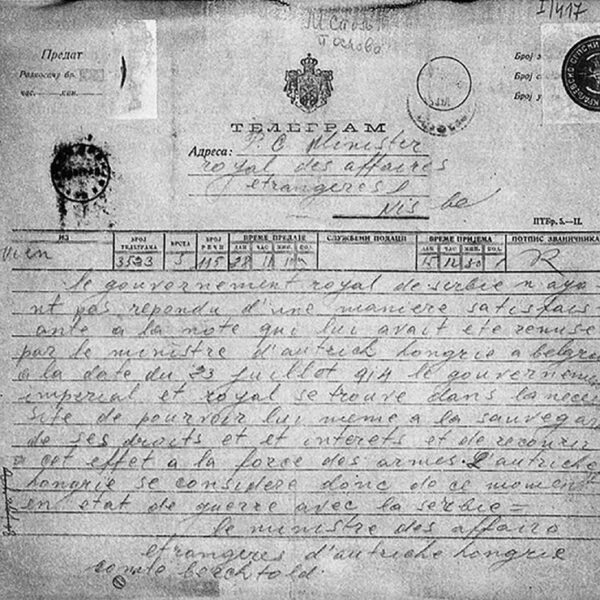 I/417
Предат
Разносачу бр.
час. мин.
Број
Број
Број
ТЕЛЕГРАМ
Адреса: Minister
royal des affaires
etrangeres
Nis
ПТБр. 5.—II.
ИЗ БРОЈ ТЕЛЕГРАМА ВРСТА БРОЈ РЕЧИ ВРЕМЕ ПРЕДАЈЕ ДАН ЧАС МИН. СЛУЖБЕНИ ПОДАЦИ ВРЕМЕ ПРИЈЕМА ДАН ЧАС МИН. ПОТПИС ЗВАНИЧНИКА
Wien 3523 115 28 15 12 30
le gouvernement royal de serbie n aya
nt pas repondu d'une maniere satisfais
ante a la note qui lui avait ete remise
par le ministre d'autrich hongrie a belgra
a la date du 23 juillot 914 le gouverneme
imperial et royal se trouve dans la neces
site de pourvoir lui meme a la sauvegar
de ses droits et et interets et de recourir
a cet effet a la force des armes. L'autriche
hongrie se considere donc de ce moment
en etat de guerre avec la serbie =
le ministre des affairs
etrangeres d'autriche hongrie
comte berchtold.